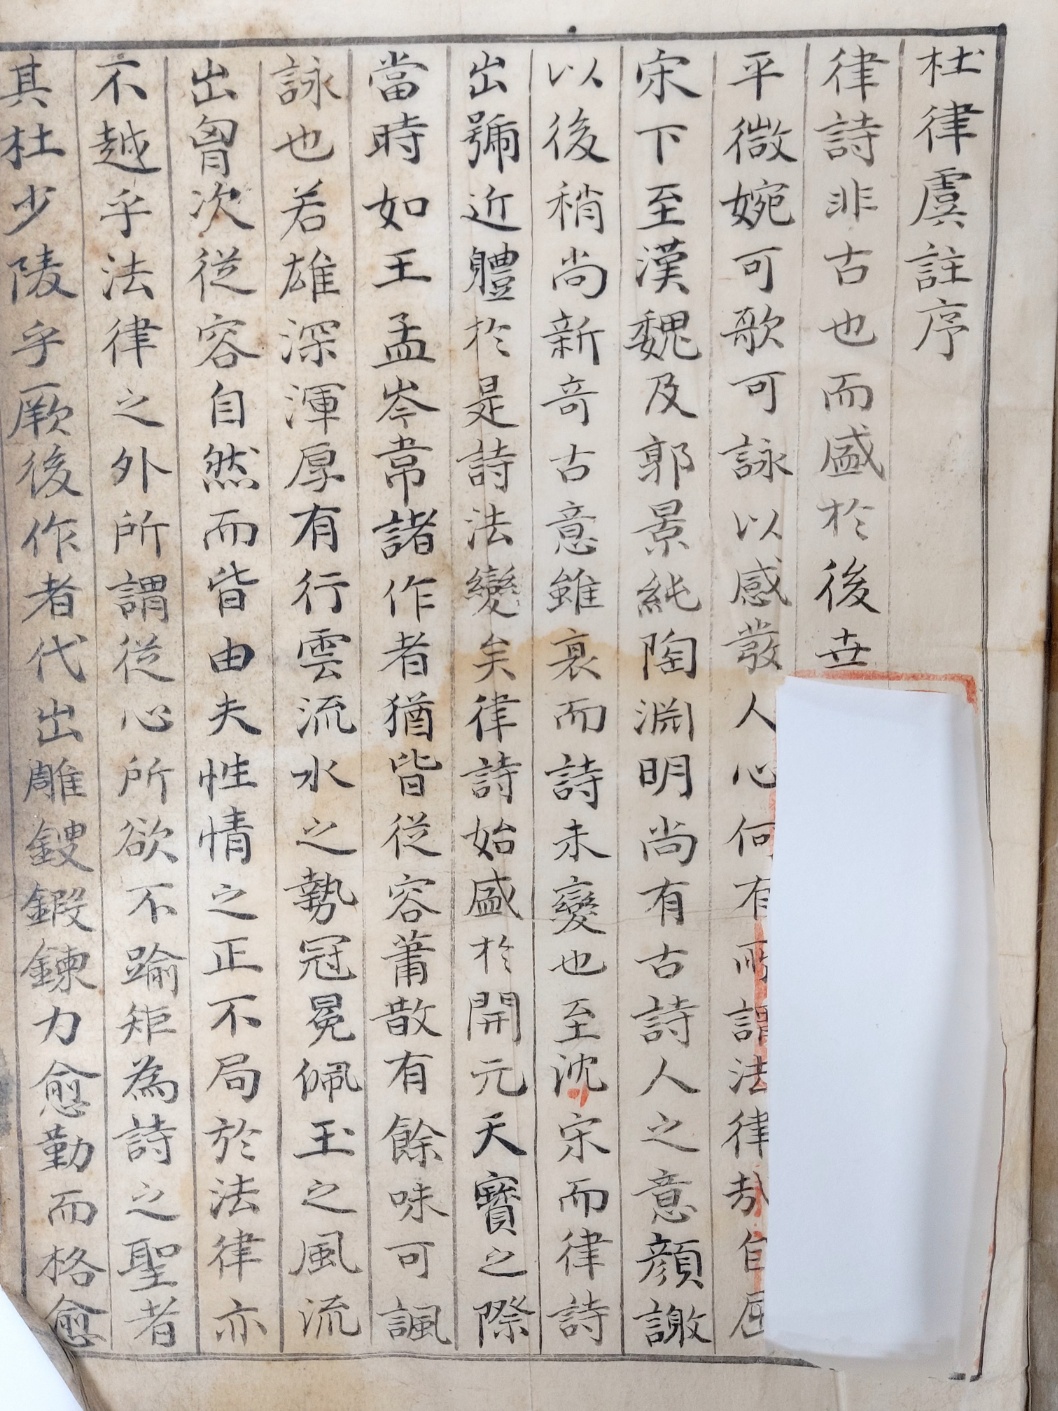 杜律虞註序
律詩非古也而盛於後世
平微婉可歌可詠以感發人心何有所謂法律哉自屈
宋下至漢魏及郭景純陶淵明尚有古詩人之意顏謝
以後稍尚新奇古意雖衰而詩未變也至沈宋而律詩
出號近體於是詩法變矣律詩始盛於開元天寶之際
當時如王孟岑常諸作者猶皆從容蕭散有餘味可諷
詠也若雄深渾厚有行雲流水之勢冠冕佩玉之風流
出胷次從容自然而皆由夫性情之正不局於法律亦
不越乎法律之外所謂從心所欲不踰矩為詩之聖者
其杜少陵乎厥後作者代出雕鎪鍜鍊力愈勤而格愈